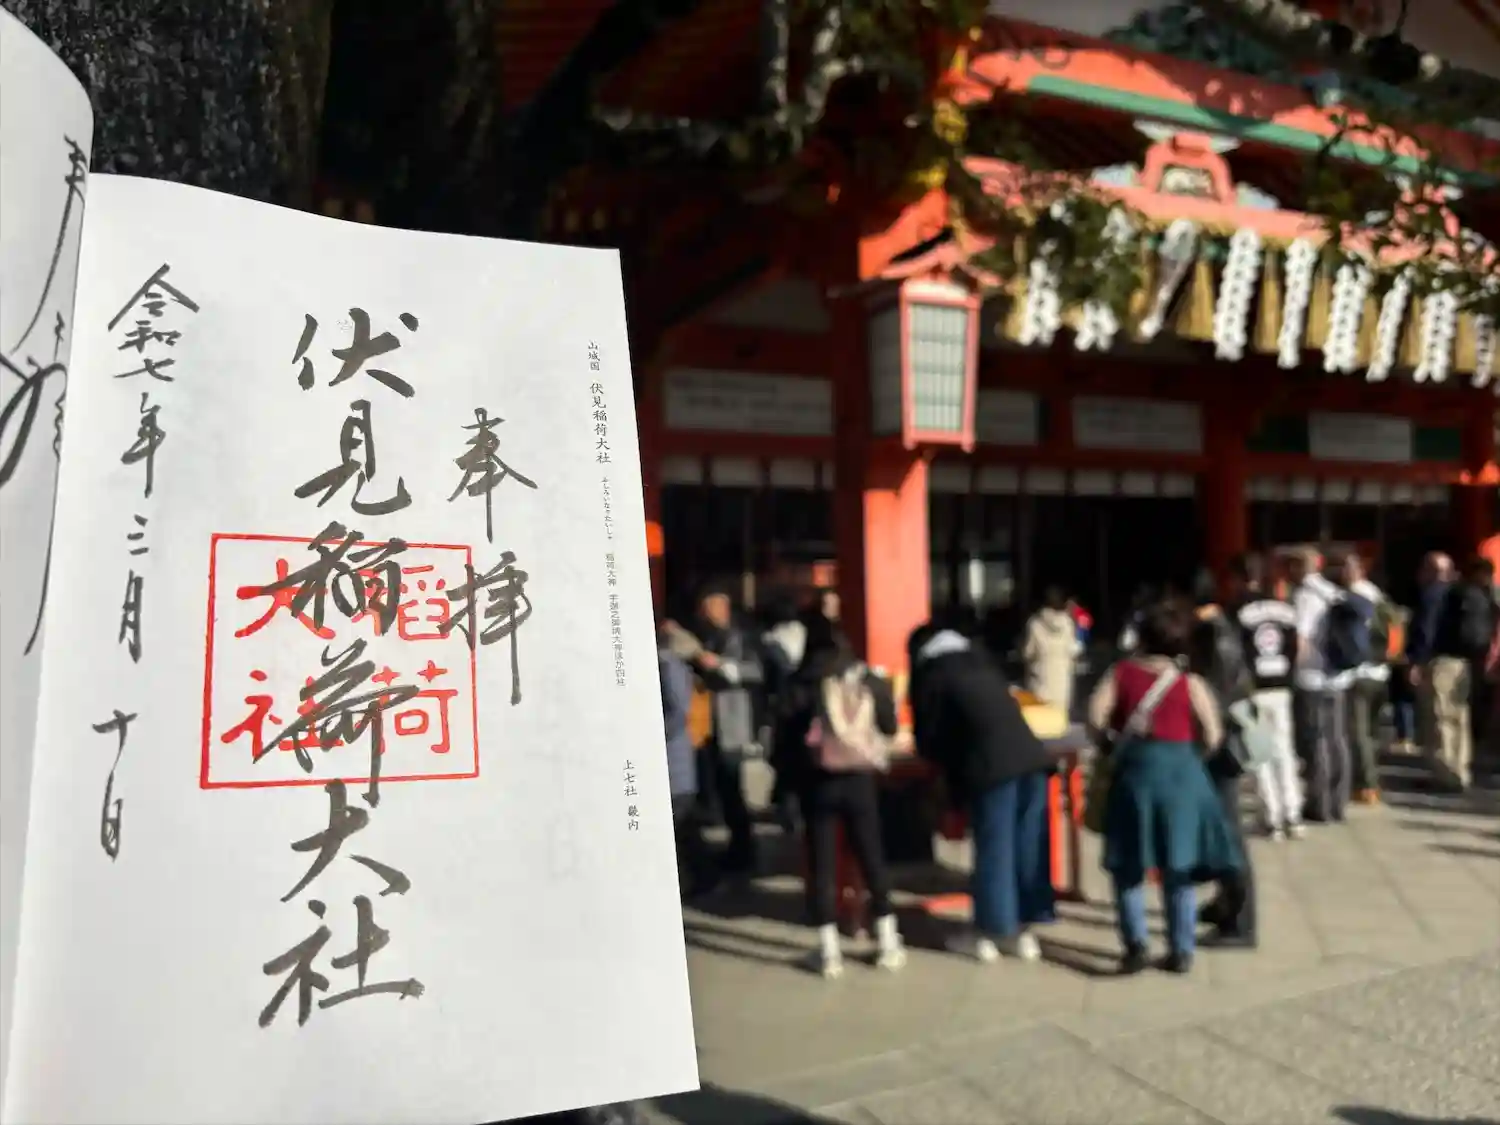 山城国 伏見稲荷大社 ふしみいなりたいしゃ 稲荷大神 宇迦之御魂大神ほか四柱 上七社 畿内
奉拝
伏見稲荷大社
稲荷
大社
令和七年三月十日